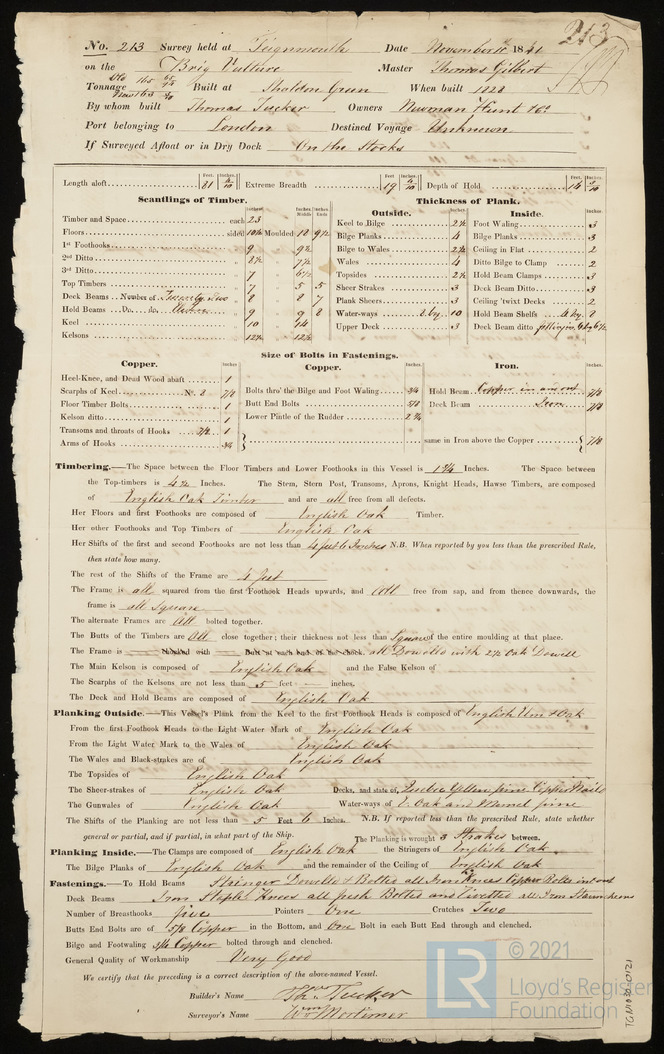 213
No. 213 Survey held at Teignmouth Date November 11 1841
on the Brig Vulture Master Thomas Gilbert
Tonnage Old 165 New 163 Built at Shaldon Green When built 1828
By whom built Thomas Tucker Owners Newman Hunt & Co
Port belonging to London Destined Voyage Unknown
If Surveyed Afloat or in Dry Dock On the Stocks
Feet. Inches. Feet Inches. Feet. Inches.
Length aloft 81 Extreme Breadth 19 Depth of Hold 14
Scantlings of Timber.
Inches Inches Middle Inches Ends
Timber and Space each 23
Floors sided 10½ Moulded 12 9½
1st Foothooks 9 9½
2nd Ditto 8½ 7½
3rd Ditto 7 6½
Top Timbers 7 5 5
Deck Beams Number of Twenty Two 8 8 7
Hold Beams Do. do. 9 9 8
Keel 10 14
Kelsons 12½ 12½
Thickness of Plank.
Outside. Inches
Keel to Bilge 2½
Bilge Planks 4
Bilge to Wales 2½
Wales 4
Topsides 2½
Sheer Strakes 3
Plank Sheers 3
Water-ways 8 by 10
Upper Deck 3
Inside. Inches
Foot Waling 3
Bilge Planks 3
Ceiling in Flat 2
Ditto Bilge to Clamp 2
Hold Beam Clamps 3
Deck Beam Ditto 3
Ceiling 'twixt Decks 2
Hold Beam Shelfs 4 by 8
Deck Beam ditto 6 by 6½
Size of Bolts in Fastenings.
Copper. Inches
Heel-Knee, and Dead Wood abaft 1
Scarphs of Keel No. 8 7/8
Floor Timber Bolts 1
Kelson ditto 1
Transoms and throats of Hooks 7/8 1
Arms of Hooks ¾
Copper. Inches.
Bolts thro' the Bilge and Foot Waling ¾
Butt End Bolts 5/8
Lower Pintle of the Rudder 2¾
Iron. Inches.
Hold Beam Copper in and out 7/8
Deck Beam Iron 7/8
same in Iron above the Copper 7/8
Timbering.—The Space between the Floor Timbers and Lower Foothooks in this Vessel is 1¾ Inches. The Space between
the Top-timbers is 4½ Inches. The Stem, Stern Post, Transoms, Aprons, Knight Heads, Hawse Timbers, are composed
of English Oak Timber and are all free from all defects.
Her Floors and first Foothooks are composed of English Oak Timber.
Her other Foothooks and Top Timbers of English Oak
Her Shifts of the first and second Foothooks are not less than 4 feet 6 Inches N.B. When reported by you less than the prescribed Rule,
then state how many.
The rest of the Shifts of the Frame are 4 feet
The Frame is all squared from the first Foothook Heads upwards, and all free from sap, and from thence downwards, the
frame is all Square
The alternate Frames are All bolted together.
The Butts of the Timbers are All close together; their thickness not less than Square of the entire moulding at that place.
The Frame is Chocked with Butt at each end of the chock. all Dowelled with 2½ Oak Dowell
The Main Kelson is composed of English Oak and the False Kelson of
The Scarphs of the Kelsons are not less than 5 feet — inches.
The Deck and Hold Beams are composed of English Oak
Planking Outside.—This Vessel's Plank from the Keel to the first Foothook Heads is composed of English Elm & Oak
From the first Foothook Heads to the Light Water Mark of English Oak
From the Light Water Mark to the Wales of English Oak
The Wales and Black-strakes are of English Oak
The Topsides of English Oak
The Sheer-strakes of English Oak Decks, and state of, Quebec Yellow pine Copper Nails
The Gunwales of English Oak Water-ways of E. Oak and Memel pine
The Shifts of the Planking are not less than 5 Feet 6 Inches. N.B. If reported less than the prescribed Rule, state whether
general or partial, and if partial, in what part of the Ship. The Planking is wrought 3 Strakes between.
Planking Inside.—The Clamps are composed of English Oak the Stringers of English Oak
The Bilge Planks of English Oak and the remainder of the Ceiling of English Oak
Fastenings.—To Hold Beams Stringer Dowelled & Bolted all Iron Knees Copper Bolts in & out
Deck Beams Iron Staple Knees all fresh Bolted and Rivetted all Iron Stauncheons
Number of Breasthooks five Pointers One Crutches Two
Butts End Bolts are of 5/8 Copper in the Bottom, and One Bolt in each Butt End through and clenched.
Bilge and Footwaling 3/4 Copper bolted through and clenched.
General Quality of Workmanship Very Good
We certify that the preceding is a correct description of the above-named Vessel.
Builder's Name Thos Tucker
Surveyor's Name Wm Mortimer
© 2021
LR
Lloyd's Register
Foundation